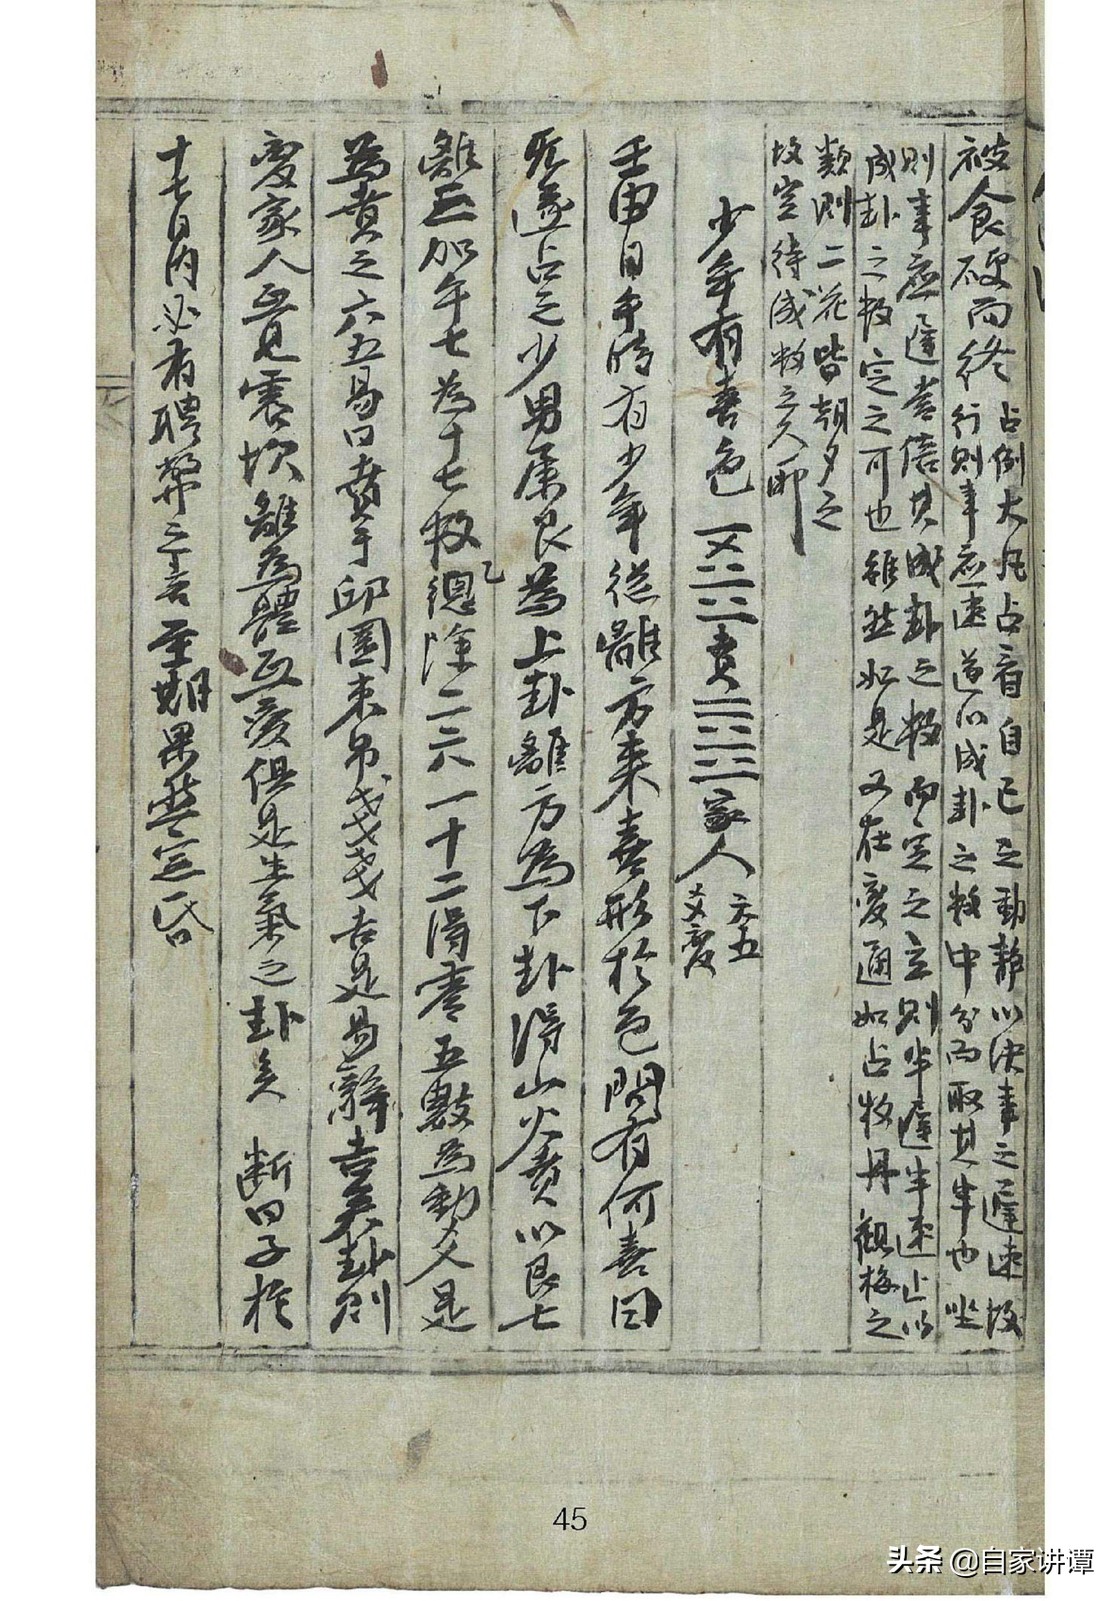 被食硬而終
占例大凡占音自己之動靜以決事之遲速故
行則事應速遂以成卦之數中分而取其半也坐
則事應遲當倍其成卦之數而定之立則半遲半速止以
成卦之數定之可也雖然如是又在變通如占牧丹觀梅之
類則二花皆朝夕之
故豈待成數之久耶
少年有喜色 賁 家人 六五爻變
壬申日午時有少年從離方來喜形於色問有何喜曰
無遂占之少男屬艮為上卦離方為下卦得山火賁以艮七
離三加午七為十七數總除二六一十二得零五數為動爻是
為賁之六五易曰賁于邱園束帛戔戔吉是易辭吉矣卦則
變家人互見震坎離為體互變俱是生氣之卦矣 斷曰子於
十七日內必有聘幣之喜至期果然定昏
45
头条 @自家讲谭